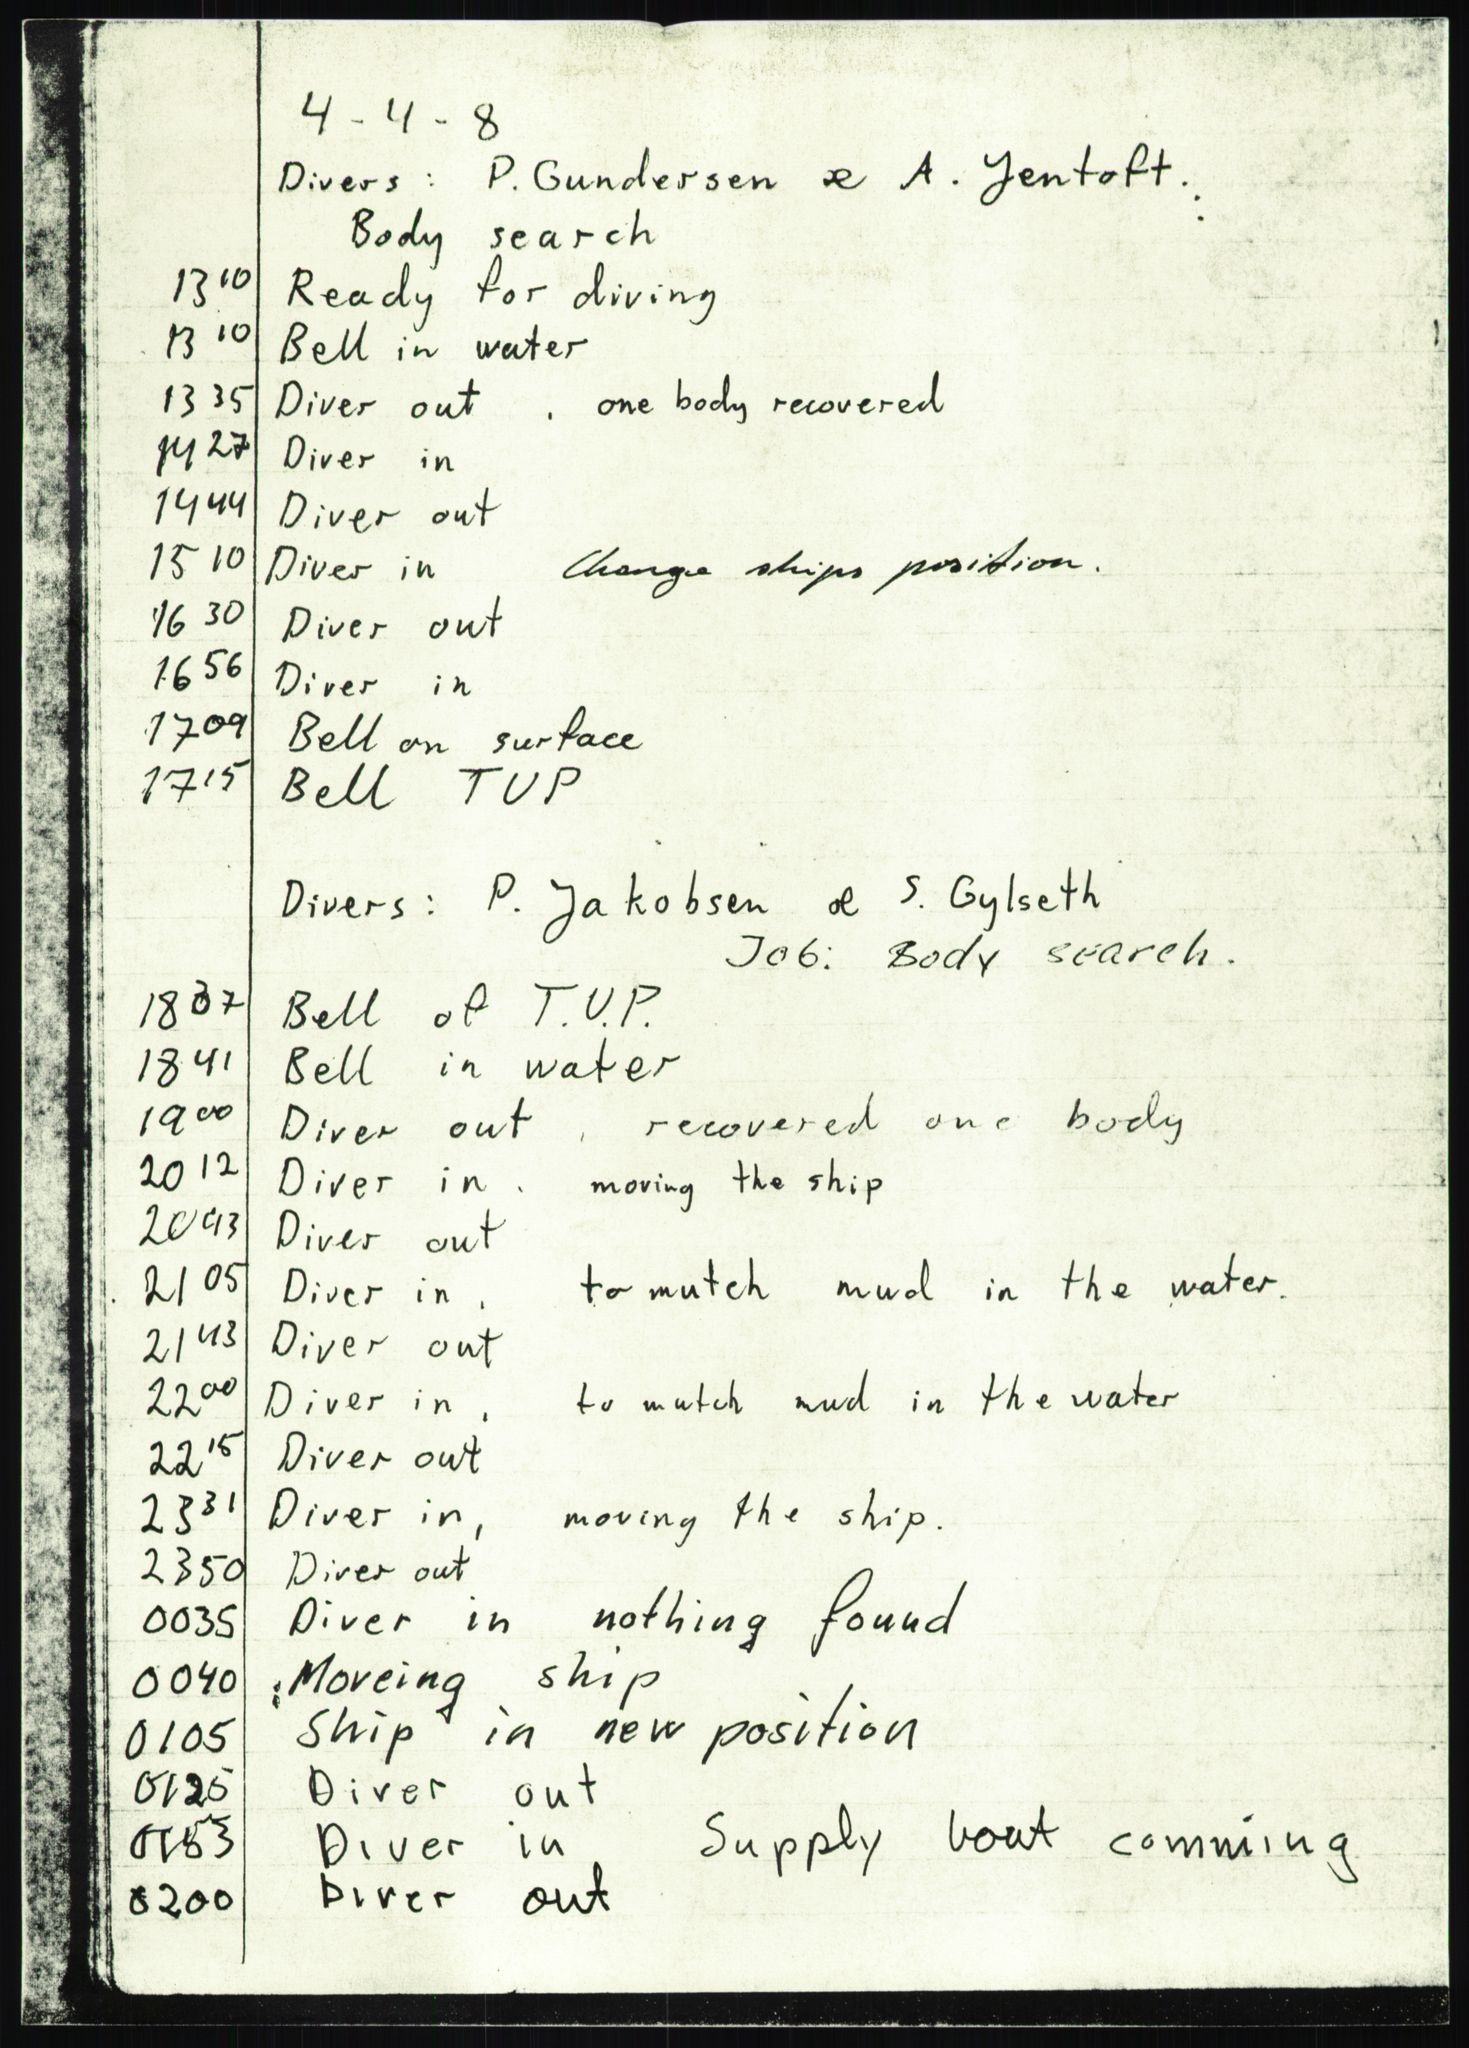 4-4-8
Divers: P. Gundersen & A. Jentoft.
Body search
13 10 Ready for diving
13 10 Bell in water
13 35 Diver out , one body recovered
14 27 Diver in
14 44 Diver out
15 10 Diver in Change ships position.
16 30 Diver out
16 56 Diver in
17 09 Bell on surface
17 15 Bell TUP
Divers: P. Jakobsen & S. Gylseth
Job: Body search.
18 37 Bell of T.U.P.
18 41 Bell in water
19 00 Diver out , recovered one body
20 12 Diver in , moving the ship
20 43 Diver out
21 05 Diver in , to mutch mud in the water.
21 43 Diver out
22 00 Diver in , to mutch mud in the water
22 15 Diver out
23 31 Diver in , moving the ship.
2350 Diver out
0035 Diver in nothing found
0040 Moveing ship
0105 Ship in new position
0125 Diver out
0153 Diver in Supply boat comming
0200 Diver out